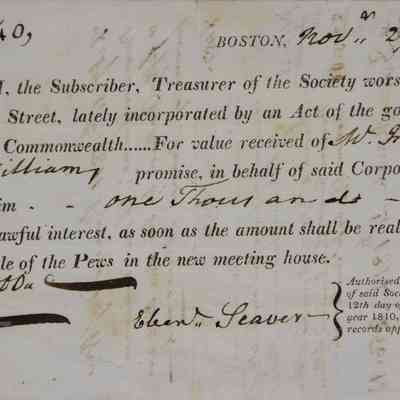 40,
BOSTON, Nov.r 2
I, the Subscriber, Treasurer of the Society wors
Street, lately incorporated by an Act of the go
Commonwealth......For value received of Mr.
illiams promise, in behalf of said Corpo
im - - one Thousand -
awful interest, as soon as the amount shall be real
le of the Pews in the new meeting house.
Eben.r Seaver
Authorised
of said Soc
12th day of
year 1810,
records app